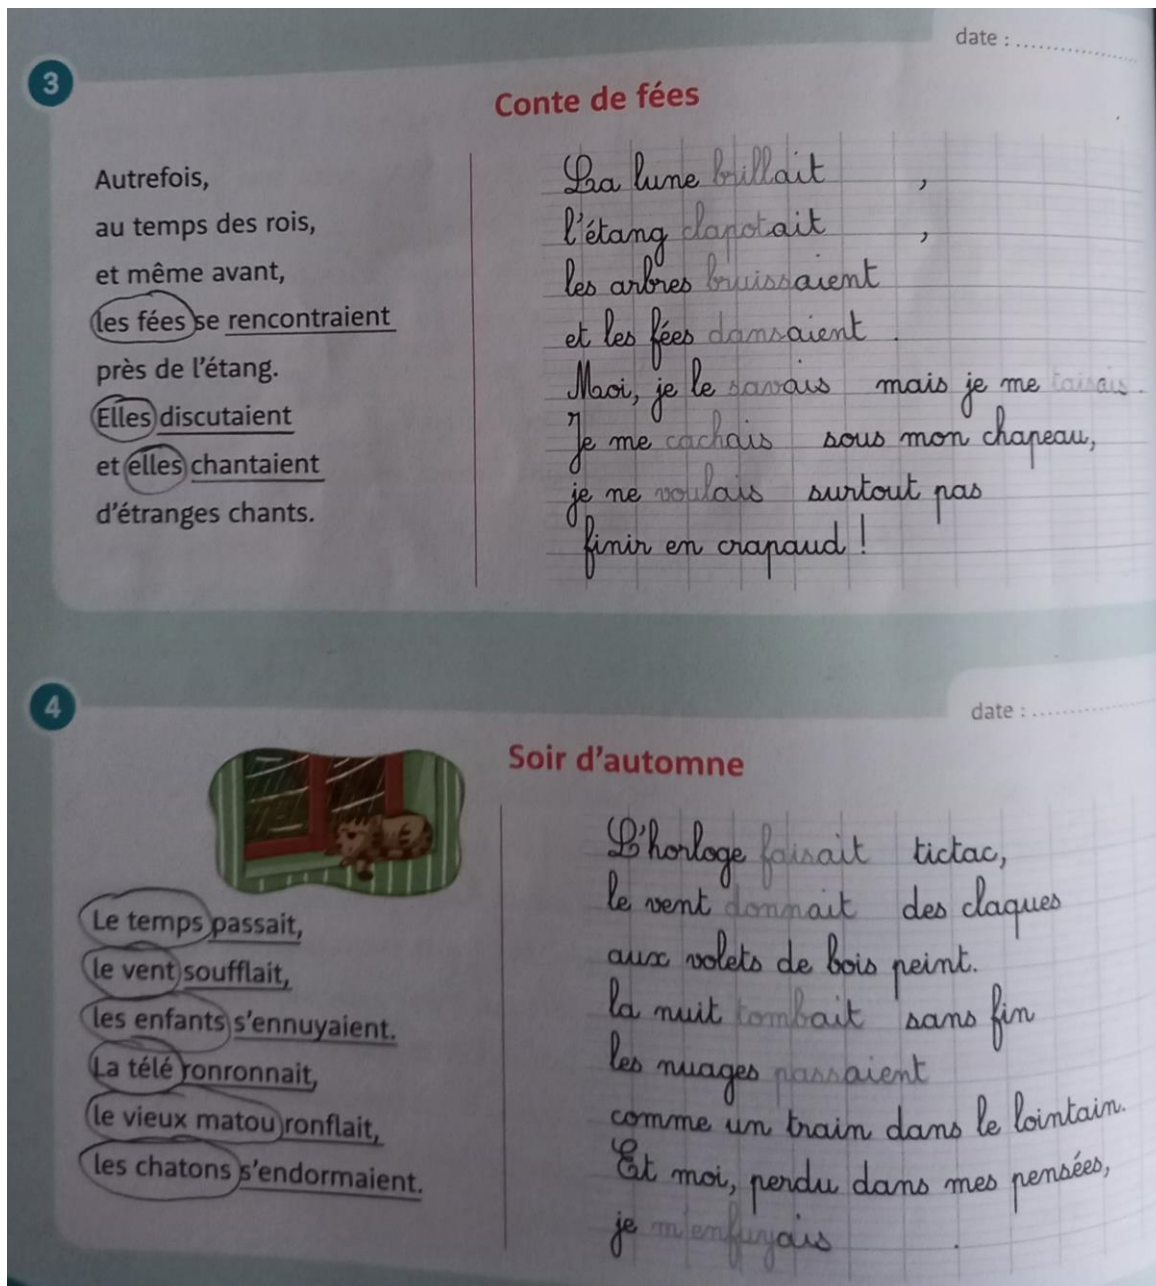 date : ....................
3
Conte de fées
Autrefois,
au temps des rois,
et même avant,
les fées se rencontraient
près de l'étang.
Elles discutaient
et elles chantaient
d'étranges chants.
La lune brillait ,
l'étang clapotait ,
les arbres bruissaient
et les fées dansaient .
Moi, je le savais mais je me taisais .
Je me cachais sous mon chapeau,
je ne voulais surtout pas
finir en crapaud !
4
date : ....................
Soir d'automne
Le temps passait,
le vent soufflait,
les enfants s'ennuyaient.
La télé ronronnait,
le vieux matou ronflait,
les chatons s'endormaient.
L'horloge faisait tictac,
le vent donnait des claques
aux volets de bois peint.
la nuit tombait sans fin
les nuages passaient
comme un train dans le lointain.
Et moi, perdu dans mes pensées,
je m'enfuyais .